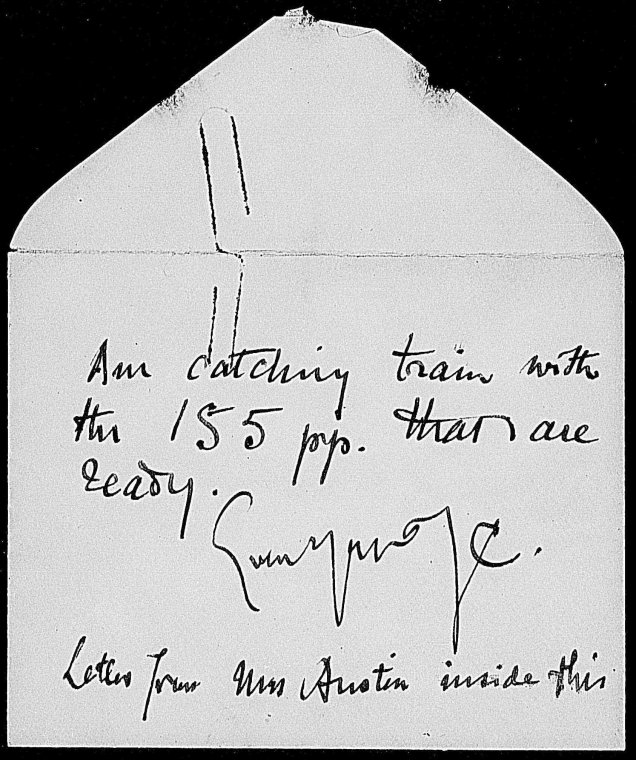 Am catching train with
the 155 pp. that are
ready.
J C.
Letter from Mrs Austin inside this